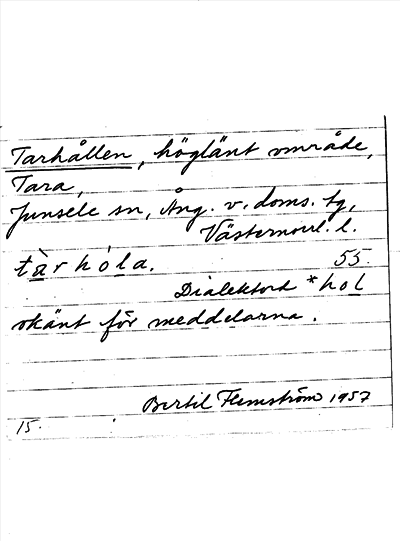 Tarhållen, höglänt område,
Tara,
Junsele sn, Ång. v. doms. tg,
Västernorrl. l.
tàrhóla. 55.
Dialektord *hol
okänt för meddelarna.
Bertil Flemström 1957
15.